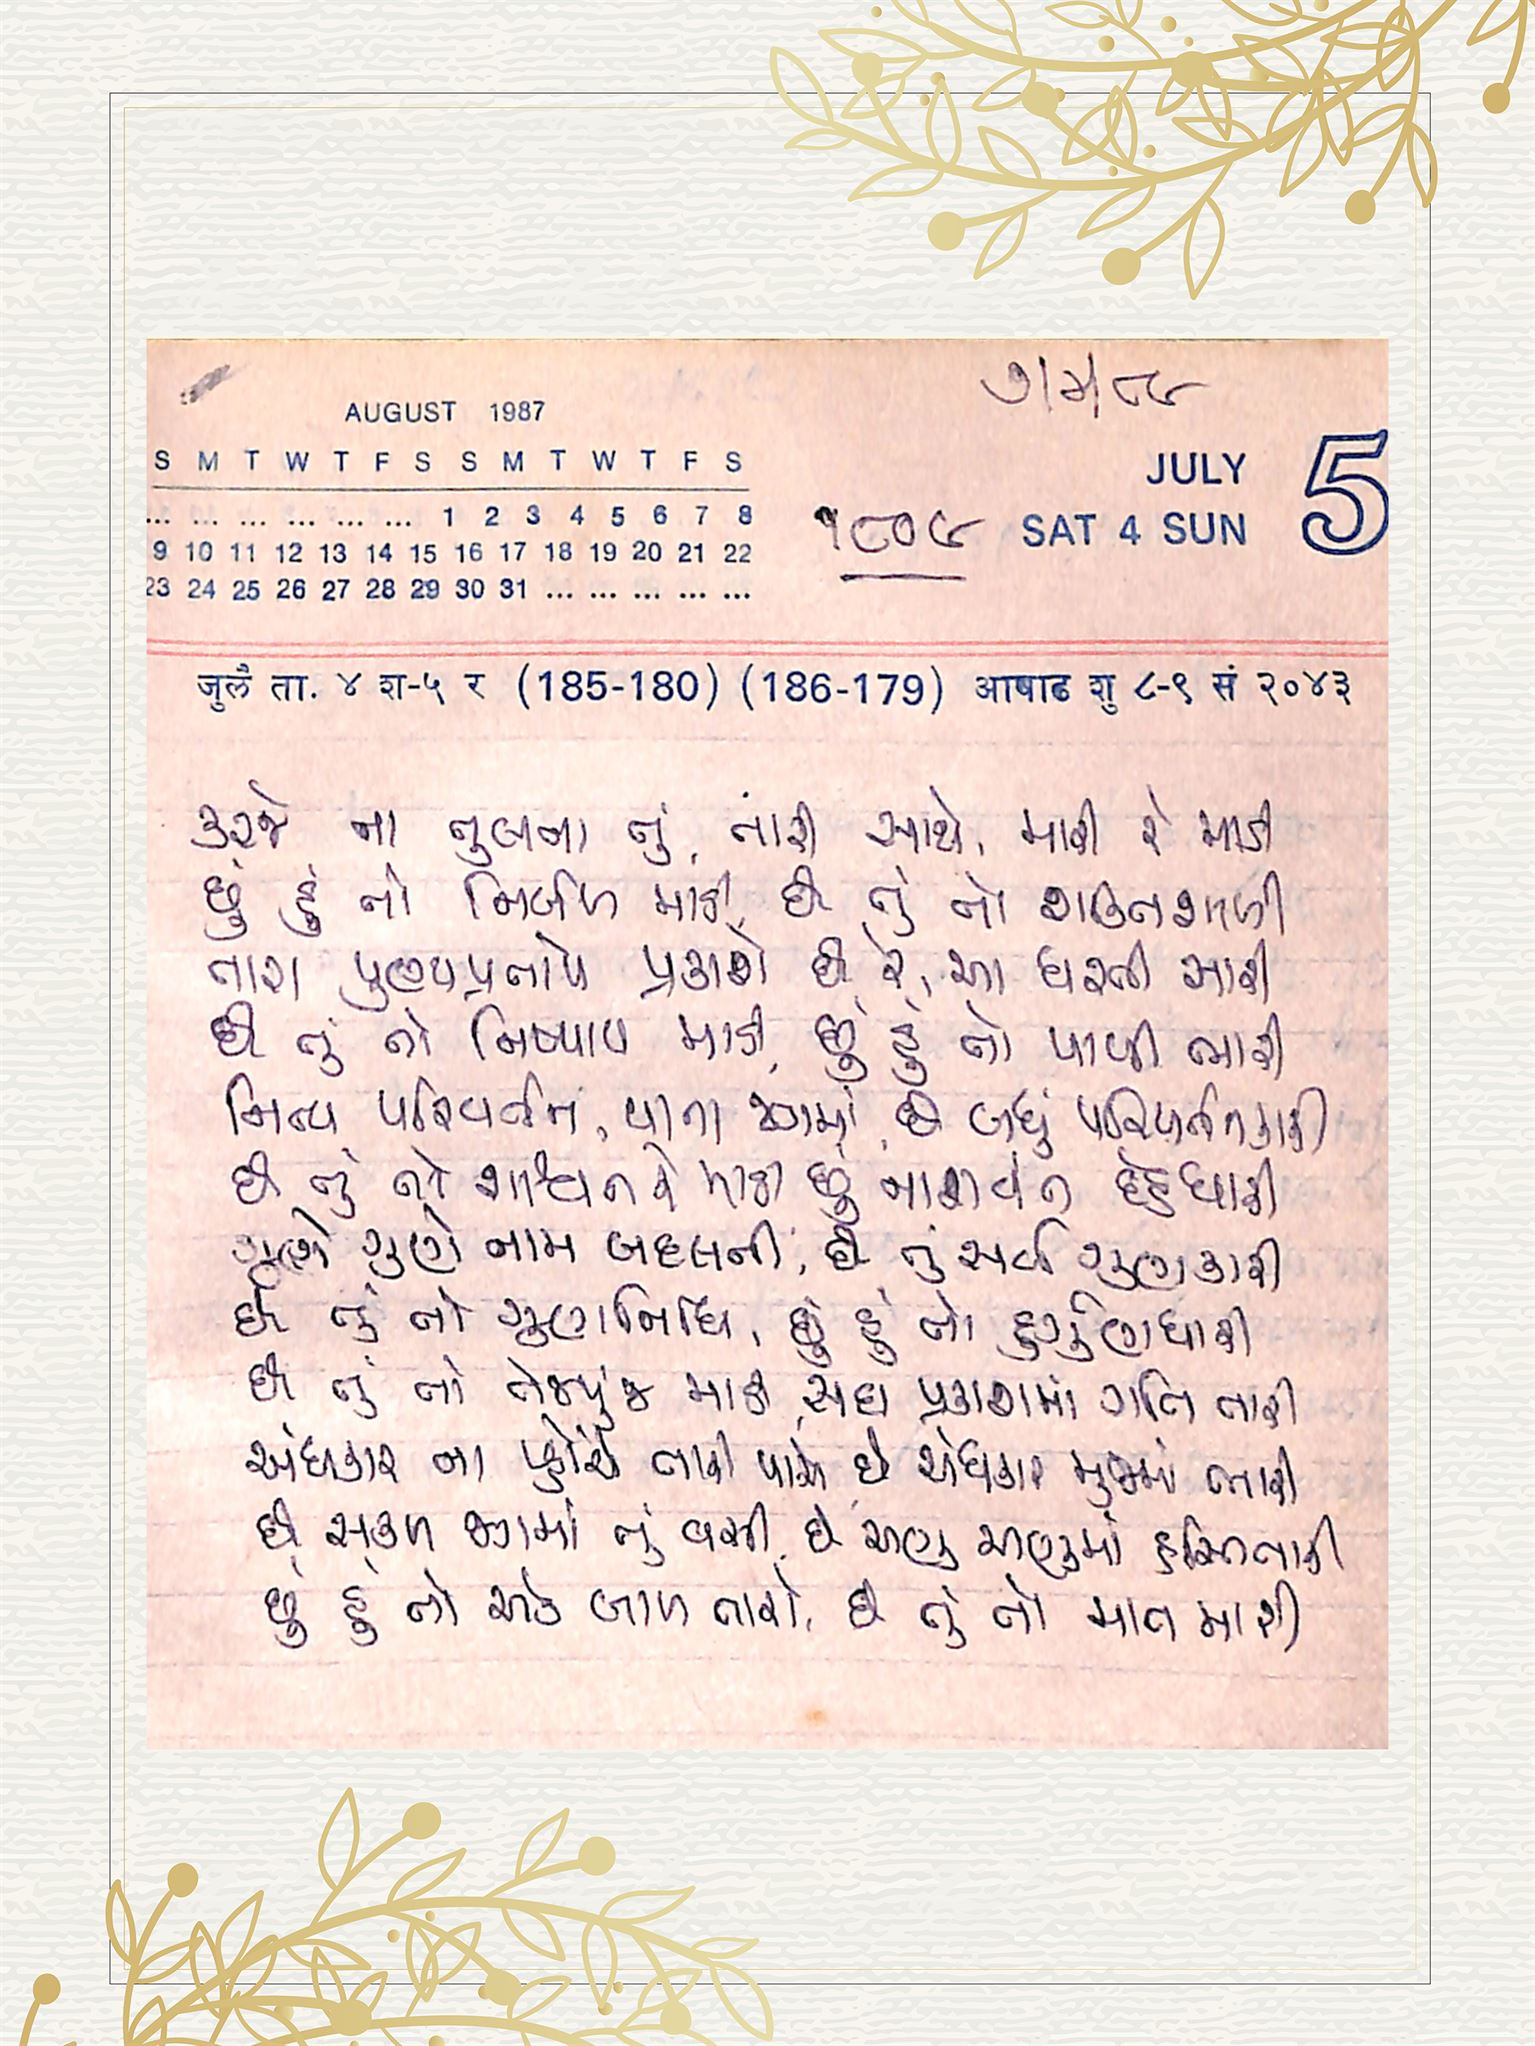 ૭/૫/૮૯
AUGUST 1987
S M T W T F S S M T W T F S
... ... ... ... ... ... 1 2 3 4 5 6 7 8
9 10 11 12 13 14 15 16 17 18 19 20 21 22
23 24 25 26 27 28 29 30 31 ... ... ... ... ...
JULY 5
૧૮૦૯ SAT 4 SUN
जुलै ता. ४ श-५ र (185-180) (186-179) आषाढ शु ८-९ सं २०४३
કરજે ના તુલના તું, તારી સાથે, મારી રે માડી
છું હું તો નિર્બળ માડી, છે તું તો શક્તિશાળી
તારા પુણ્યપ્રતાપે પ્રકાશે છે રે, આ ધરતી સારી
છે તું તો નિષ્પાપ માડી, છું હું તો પાપી ભારી
નિત્ય પરિવર્તન, પામતા જગમાં, છે બધું પરિવર્તનકારી
છે તું તો શાશ્વત રે માડી છું નાશવંત દેહધારી
ગુણે ગુણે નામ બદલતી, છે તું સર્વ ગુણકારી
છે તું તો ગુણનિધિ, છું હું તો દુર્ગુણધારી
છે તું તો તેજપુંજ માડી, સદા પ્રકાશમાં ગતિ તારી
અંધકાર ના પ્હોંચે તારી પાસે, છે અંધકાર મુજમાં ભારી
છે સકળ જગમાં તું વસી, છે અણુ અણુમાં હસ્તિ તારી
છું હું તો એક બાળ તારો, છે તું તો માત મારી